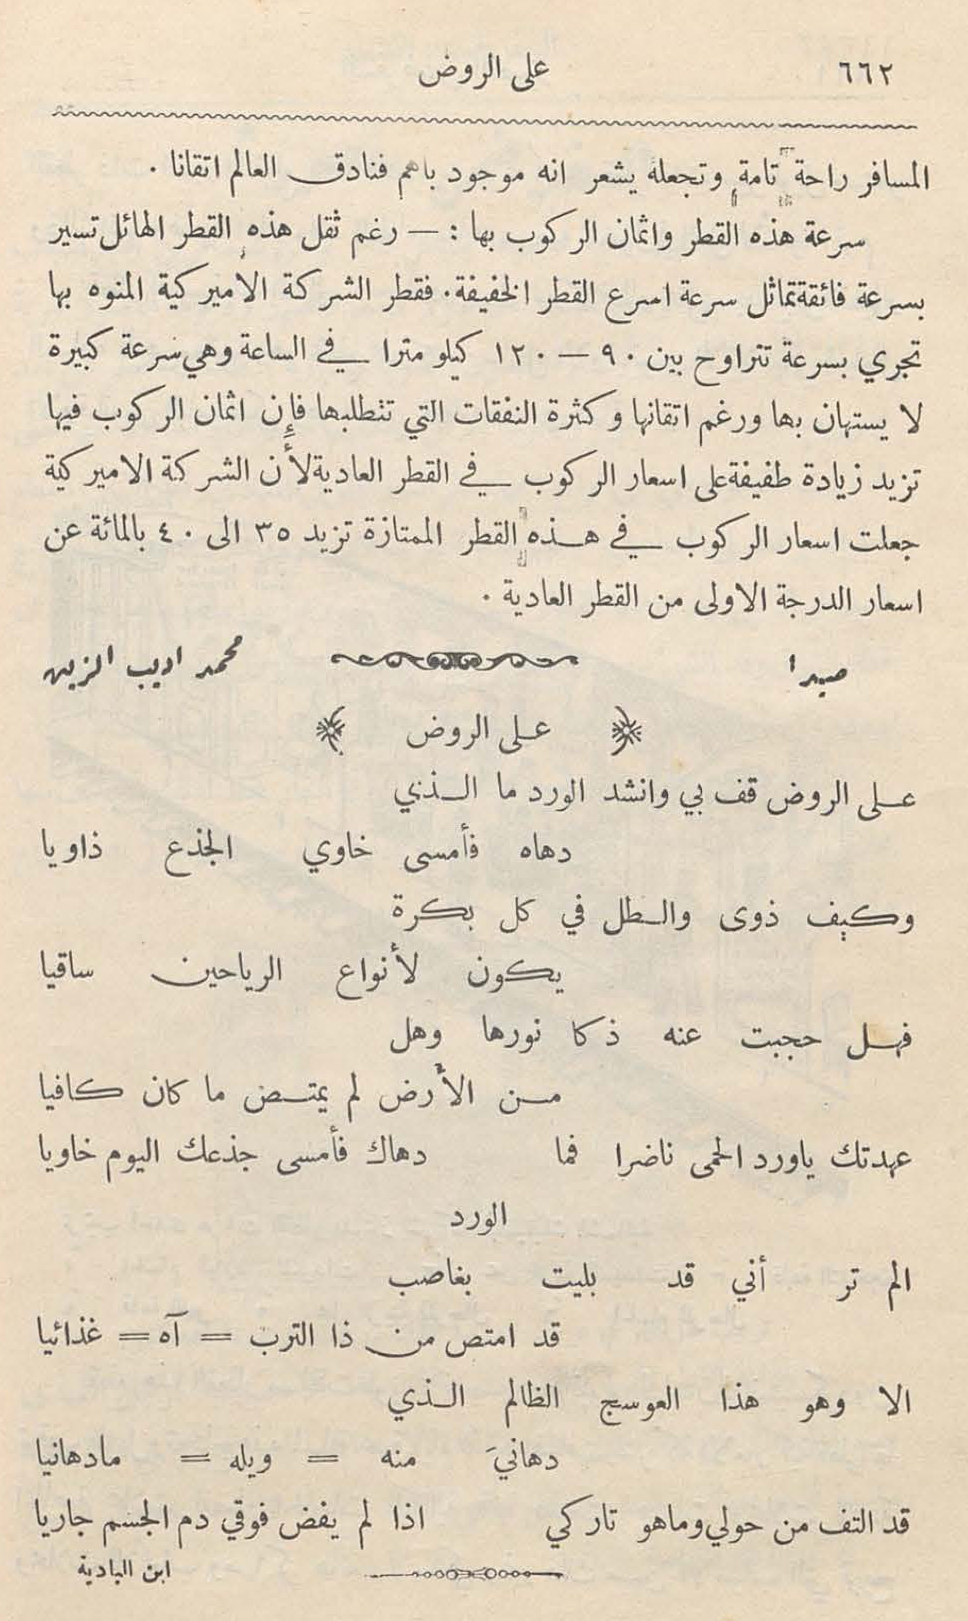 ٦٦٢
على الروض
المسافر راحة تامة وتجعله يشعر انه موجود باهم فنادق العالم اتقانا .
سرعة هذه القطر واثمان الركوب بها : — رغم ثقل هذه القطر الهائل تسير
بسرعة فائقة تماثل سرعة اسرع القطر الخفيفة . فقطر الشركة الاميركية المنوه بها
تجري بسرعة تتراوح بين ٩٠ — ١٢٠ كيلو مترا في الساعة وهي سرعة كبيرة
لا يستهان بها ورغم اتقانها وكثرة النفقات التي تتطلبها فإن اثمان الركوب فيها
تزيد زيادة طفيفة على اسعار الركوب في القطر العادية لأن الشركة الاميركية
جعلت اسعار الركوب في هذه القطر الممتازة تزيد ٣٥ الى ٤٠ بالمائة عن
اسعار الدرجة الاولى من القطر العادية .
صيدا محمد اديب الزين
على الروض
على الروض قف بي وانشد الورد ما الذي
دهاه فأمسى خاوي الجذع ذاويا
وكيف ذوى والطل في كل بكرة
يكون لأنواع الرياحين ساقيا
فهل حجبت عنه ذكا نورها وهل
من الأرض لم يمتص ما كان كافيا
عهدتك ياورد الحمى ناضرا فما دهاك فأمسى جذعك اليوم خاويا
الورد
الم تر أني قد بليت بغاصب
قد امتص من ذا الترب = آه = غذائيا
الا وهو هذا العوسج الظالم الذي
دهانيَ منه = ويله = مادهانيا
قد التف من حولي وماهو تاركي اذا لم يفض فوقي دم الجسم جاريا
ابن البادية